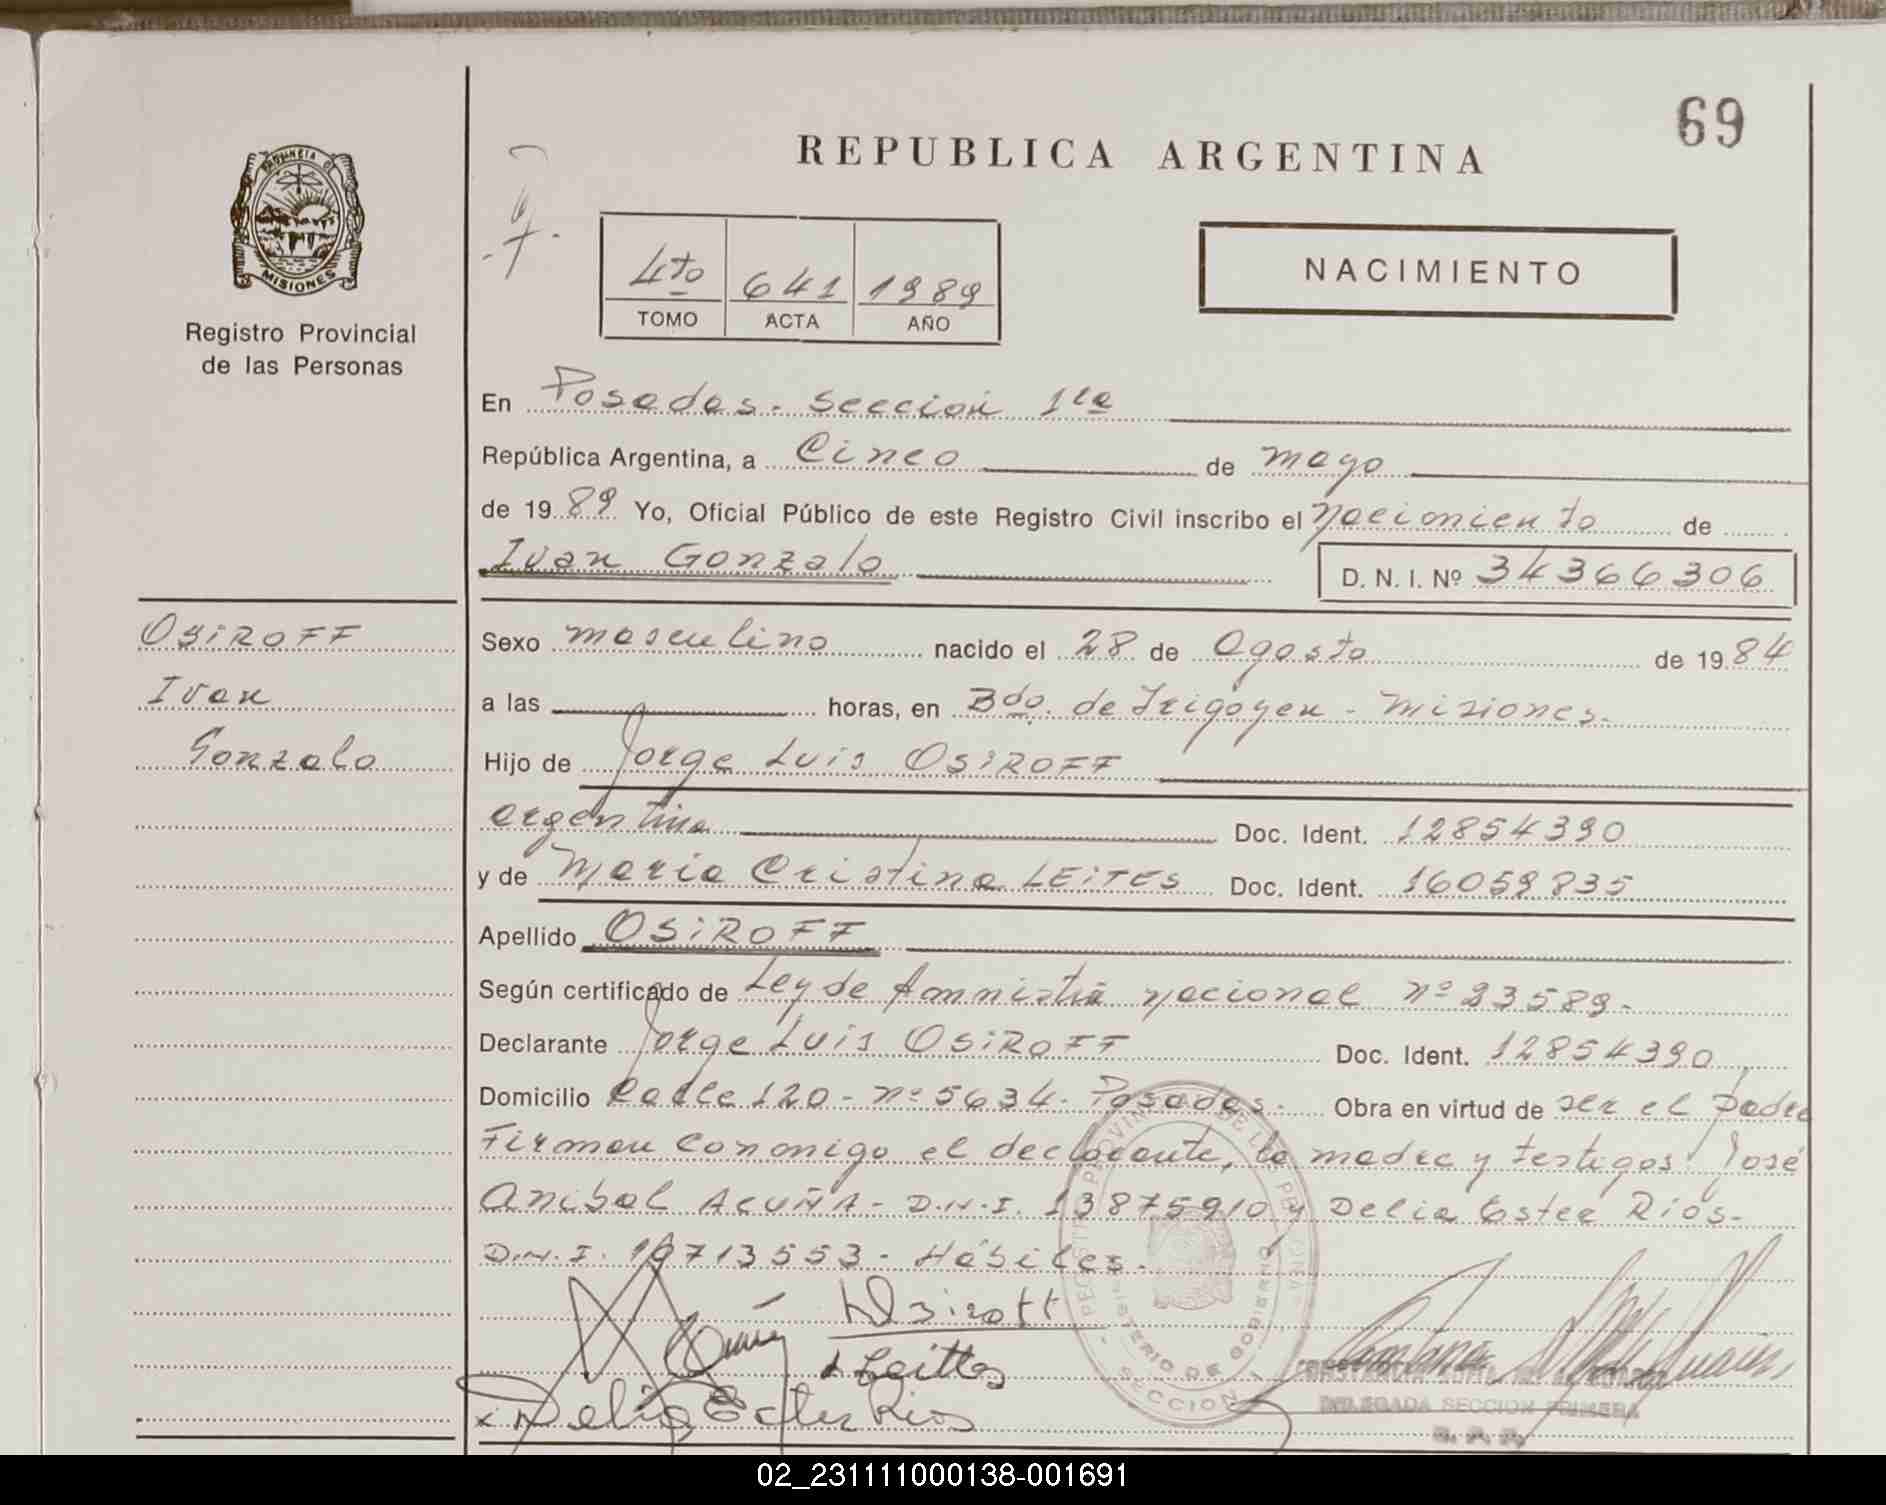 69
REPUBLICA ARGENTINA
PROVINCIA DE
MISIONES
Registro Provincial
de las Personas
4to 641 1989
TOMO ACTA AÑO
NACIMIENTO
En Posadas. Sección 1ra
República Argentina, a Cinco de mayo
de 1989 Yo, Oficial Público de este Registro Civil inscribo el nacimiento de
Ivan Gonzalo D. N. I. Nº 34366306
OSiROFF
Ivan
Gonzalo
Sexo masculino nacido el 28 de Agosto de 1984
a las horas, en Bdo. de Irigoyen - Misiones.
Hijo de Jorge Luis OSiROFF
argentina Doc. Ident. 12854390
y de Maria Cristina LEiTES Doc. Ident. 16059835
Apellido OSiROFF
Según certificado de Ley de Amnistia nacional nº 23589-
Declarante Jorge Luis OSiROFF Doc. Ident. 12854390
Domicilio Calle 120 - nº 5634. Posadas. Obra en virtud de ser el padre
Firman conmigo el declarante, la madre y testigos: José
Anibal ACUÑA - D.N.I. 13875910 y Delia Ester Ríos-
D.N.I. 10713553 - Hábiles.
Osiroff
Leites
Delia Ester Rios
SECCION 1
MINISTERIO DE GOBIERNO
DELEGADA SECCION PRIMERA
R. P. P.
02_231111000138-001691